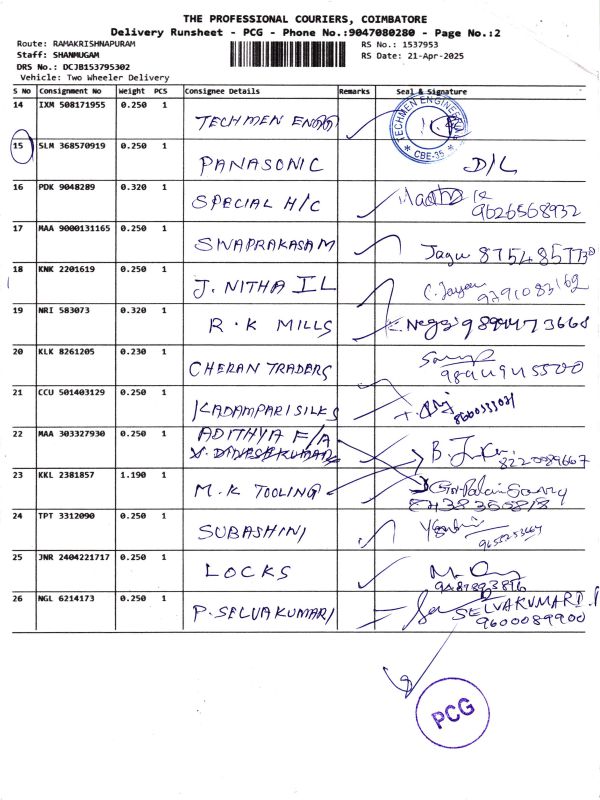 THE PROFESSIONAL COURIERS, COIMBATORE
Delivery Runsheet - PCG - Phone No.:9047080280 - Page No.:2
Route: RAMAKRISHNAPURAM
RS No.: 1537953
Staff: SHANMUGAM
RS Date: 21-Apr-2025
DRS No.: DCJB153795302
Vehicle: Two Wheeler Delivery
S No Consignment No Weight PCS Consignee Details Remarks Seal & Signature
14 IXM 508171955 0.250 1 TECHMEN ENGG
TECHMEN ENGINEER
* CBE-35 *
15 SLM 368570919 0.250 1 PANASONIC D/L
16 PDK 9048289 0.320 1 SPECIAL H/C
9626568932
17 MAA 9000131165 0.250 1 SIVAPRAKASAM
18 KNK 2201619 0.250 1 J. NITHA IL
19 NRI 583073 0.320 1 R.K MILLS
20 KLK 8261205 0.230 1 CHERAN TRADERS
21 CCU 501403129 0.250 1 KADAMPARI SILKS
22 MAA 303327930 0.250 1 ADITHYA F/A
23 KKL 2381857 1.190 1 M.K TOOLING
24 TPT 3312090 0.250 1 SUBASHINI
25 JNR 2404221717 0.250 1 LOCKS
26 NGL 6214173 0.250 1 P. SELVAKUMARI
SELVAKUMARI.P
9600089900
PCG